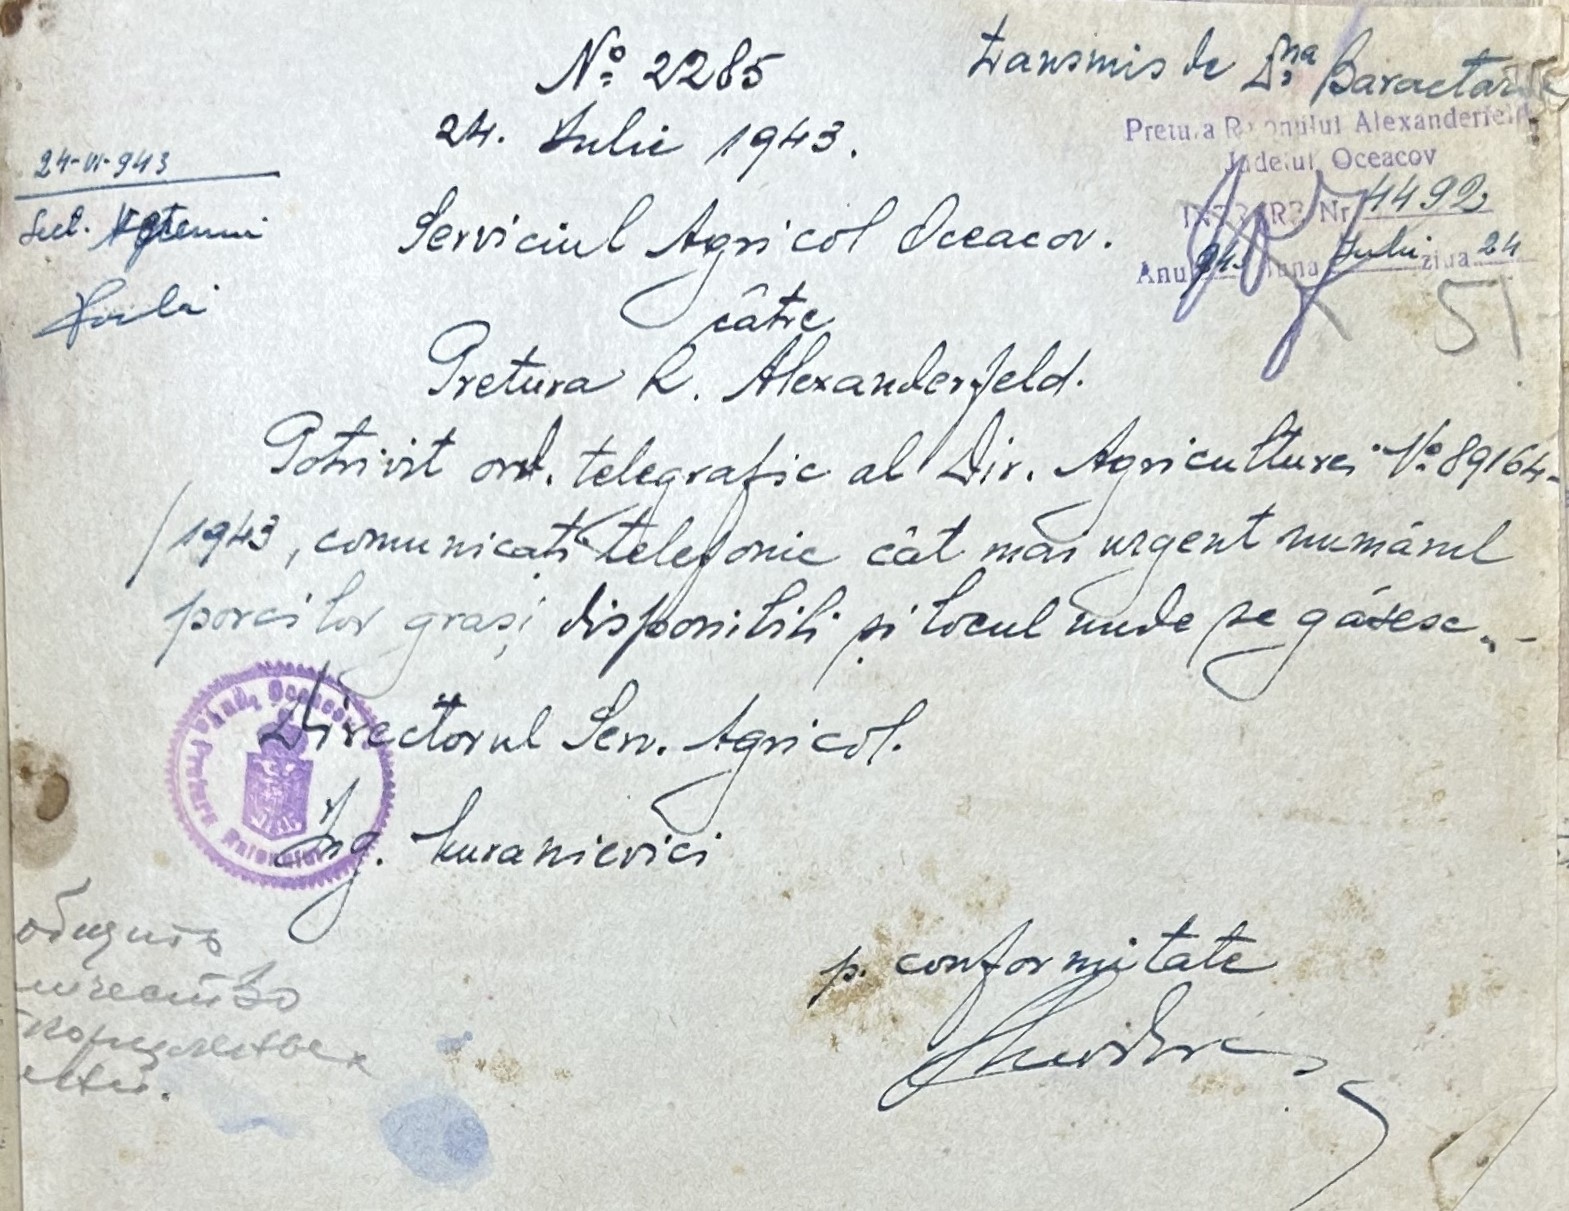 No 2285
transmis de Dna Baractaru
24. Iulie 1943.
Pretura Raionului Alexanderfeld
Judeţul Oceacov
INTRARE Nr. 4492
Anul 943 luna Iulie ziua 24
51
24-VI-943
Sect.
Serviciul Agricol Oceacov.
către
Pretura R. Alexanderfeld.
Potrivit ord. telegrafic al Dir. Agriculturei No 89164-
/1943, comunicati telefonic cât mai urgent numărul
porcilor grași disponibili și locul unde se găsesc.-
Directorul Serv. Agricol.
Ing. Luranievici
Pretura Raionului Jud. Oceacov
p. conformitate